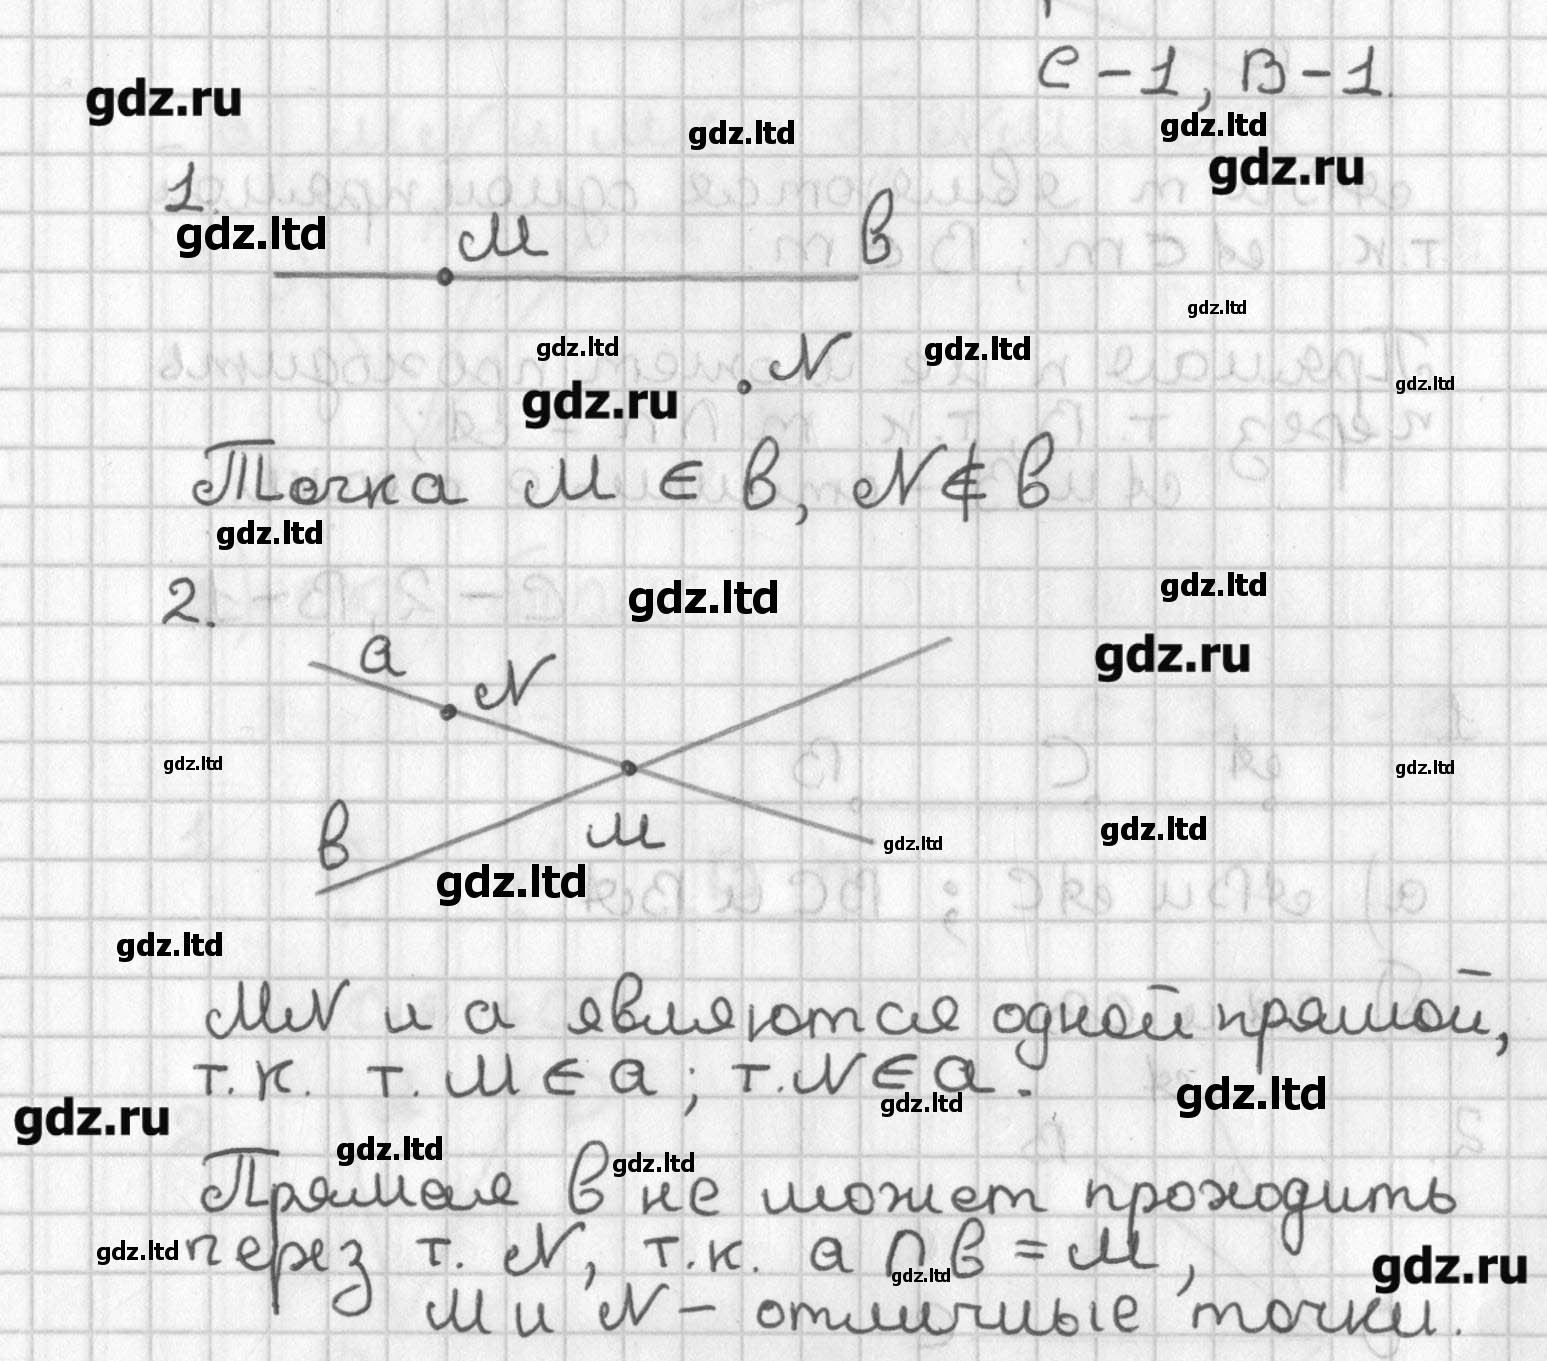 С - 1, В - 1.
gdz.ru
gdz.ltd
gdz.ltd
gdz.ru
1.
gdz.ltd
M
в
gdz.ltd
gdz.ltd
N
gdz.ltd
gdz.ltd
gdz.ru
Точка M ∈ в, N ∉ в
gdz.ltd
2.
gdz.ltd
gdz.ltd
a
N
gdz.ru
gdz.ltd
gdz.ltd
в
M
gdz.ltd
gdz.ltd
gdz.ltd
gdz.ltd
MN и a являются одной прямой,
т.к. т. M ∈ a; т. N ∈ a.
gdz.ltd
gdz.ltd
gdz.ru
gdz.ltd
gdz.ltd
Прямая в не может проходить
gdz.ltd
через т. N, т.к. a ∩ в = M,
gdz.ltd
gdz.ru
M и N - отличные точки.